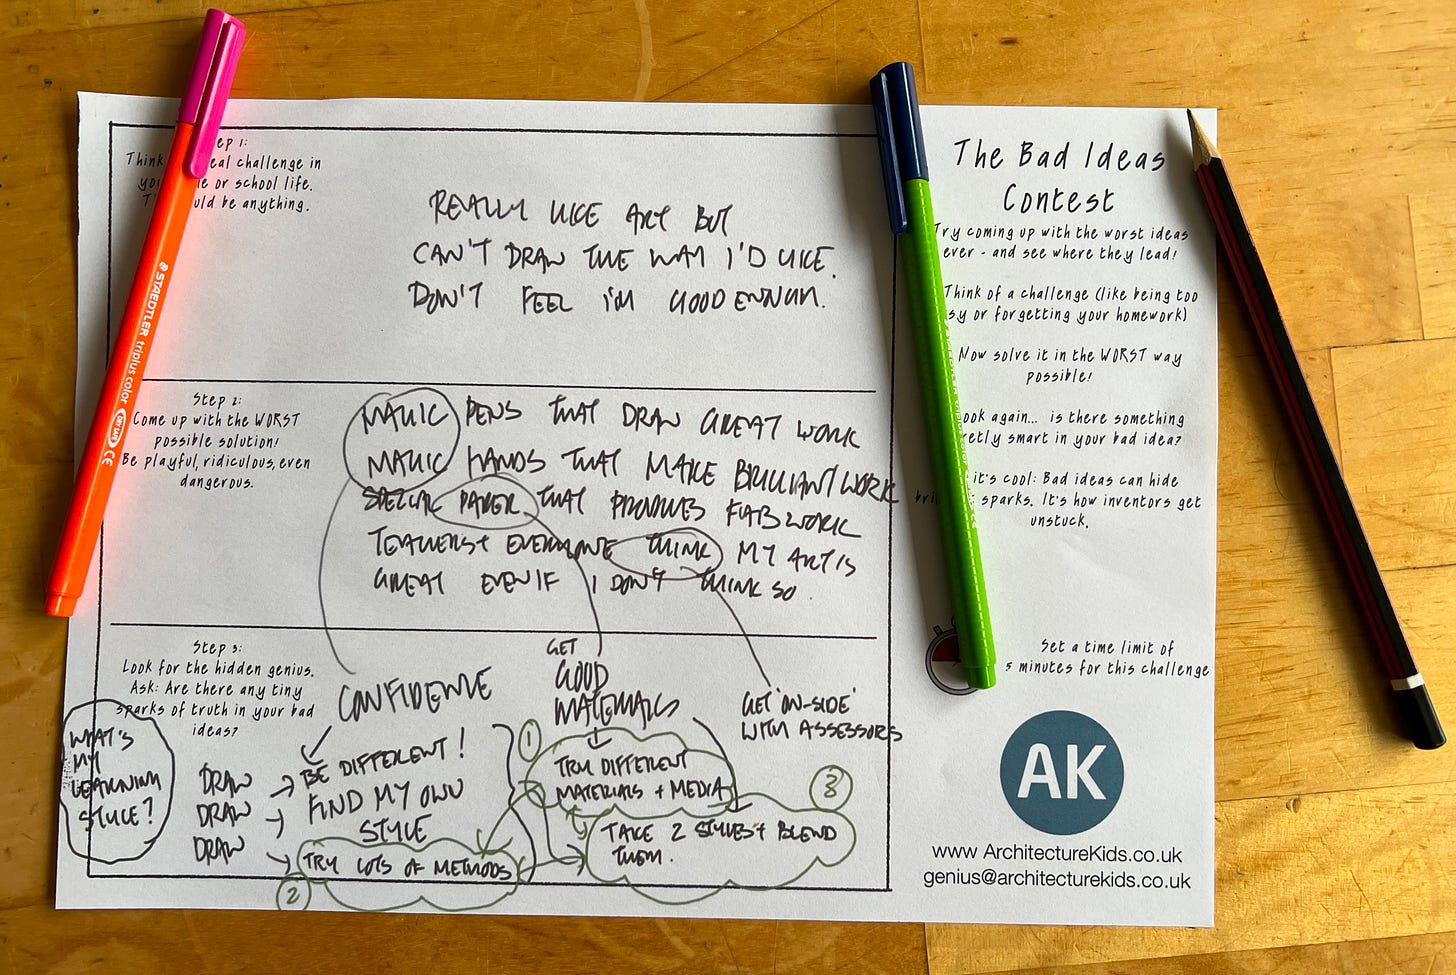 STAEDTLER triplus color
DRY SAFE CE
ep 1:
Think eal challenge in
you e or school life.
T uld be anything.
REALLY LIKE ART BUT
CAN'T DRAW THE WAY I'D LIKE.
DON'T FEEL I'M GOOD ENOUGH.
Step 2:
Come up with the WORST
possible solution!
Be playful, ridiculous, even
dangerous.
MAGIC PENS THAT DRAW GREAT WORK
MAGIC HANDS THAT MAKE BRILLIANT WORK
SPECIAL PAPER THAT PRODUCES FAB WORK
TEACHERS + EVERYONE THINK MY ART IS
GREAT EVEN IF I DON'T THINK SO.
Step 3:
Look for the hidden genius.
Ask: Are there any tiny
sparks of truth in your bad
ideas?
WHAT'S
MY
LEARNING
STYLE?
DRAW
DRAW
DRAW
CONFIDENCE
BE DIFFERENT!
FIND MY OWN
STYLE
2
TRY LOTS OF METHODS
GET
GOOD
MATERIALS
1
TRY DIFFERENT
MATERIALS + MEDIA
GET 'ON-SIDE'
WITH ASSESSORS
3
TAKE 2 STYLES + BLEND
THEM.
The Bad Ideas
Contest
Try coming up with the worst ideas
ever - and see where they lead!
Think of a challenge (like being too
sy or forgetting your homework)
Now solve it in the WORST way
possible!
ook again... is there something
retly smart in your bad idea?
it's cool: Bad ideas can hide
bri t sparks. It's how inventors get
unstuck.
Set a time limit of
5 minutes for this challenge
AK
www ArchitectureKids.co.uk
genius@architecturekids.co.uk